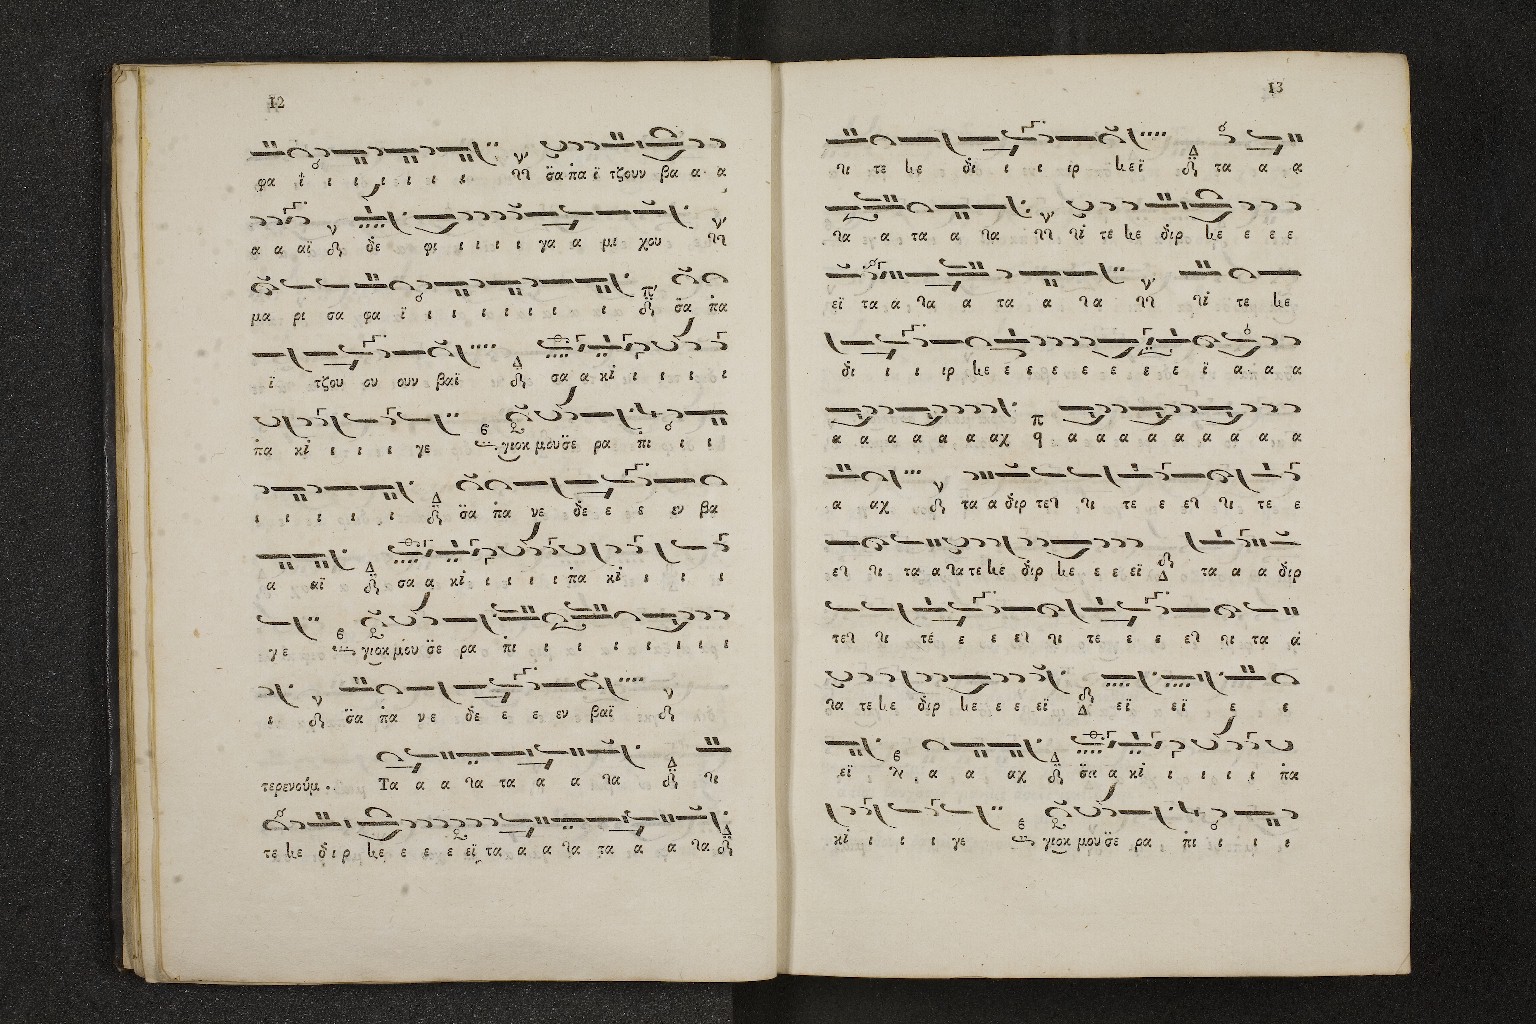 12
φα ΐ ι ι ι ι ι ι ι σ̈α πα ϊ τζουν βα α α
α α αϊ δε φι ι ι ι ι γα α μι χου
μα ρι σα φα ϊ ι ι ι ι ι ι ι ι σ̈α πα
ϊ τζου ου ουν βαϊ σα α κὶ ι ι ι ι
πα κὶ ι ι ι γε γιοκ μου σ̈ε ρα πι ι ι
ι ι ι ι ι σ̈α πα νε δε ε ε εν βα
α αϊ σα α κὶ ι ι ι ι πα κὶ ι ι ι
γε γιοκ μου σ̈ε ρα πι ι ι ι ι ι ι
ι σ̈α πα νε δε ε ε εν βαϊ
τερενούμ. Τα α α λα τα α α λα λι
τε λε διρ λε ε ε ε εϊ τα α α λα τα α α λα
13
λι τε λε δι ι ι ιρ λεϊ τα α α
λα α τα α λα λὶ τε λε διρ λε ε ε ε
εϊ τα α λα α τα α λα λὶ τε λε
δι ι ι ιρ λε ε ε ε ε ε ε ε ϊ α α α
α α α α α α αχ α α α α α α α α α
α αχ τα α διρ τελ λι τε ε ελ λι τε ε
ελ λι τα α λα τε λε διρ λε ε ε εϊ τα α α διρ
τελ λι τέ ε ε ελ λι τε ε ε ελ λι τα α
λα τε λε διρ λε ε ε εϊ εϊ εϊ ε ε
εϊ α α αχ σ̈α α κὶ ι ι ι ι πα
κὶ ι ι ι γε γιοκ μου σ̈ε ρα πι ι ι ι